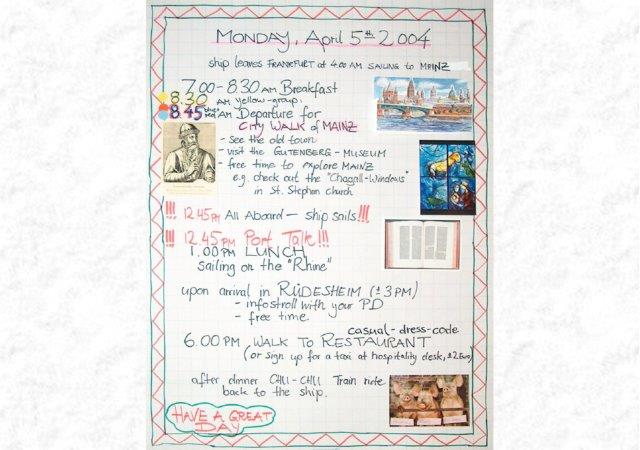 MONDAY, April 5th 2004
ship leaves FRANKFURT at 4.00 AM SAILING to MAINZ
7.00 - 8.30 AM Breakfast
8.30 AM yellow-group.
8.45 AM Departure for
City WALK of MAINZ
- see the old town
- visit the GUTENBERG - MUSEUM
- free time to explore MAINZ
e.g. check out the "Chagall-Windows"
in St. Stephen church
!!! 12.45 PM All Aboard — ship sails!!!
!!! 12.45 PM Port Talk!!!
1.00 PM LUNCH
sailing on the "Rhine"
upon arrival in RÜDESHEIM (± 3 PM)
- infostroll with your PD
- free time.
casual-dress-code
6.00 PM WALK TO RESTAURANT
(or sign up for a taxi at hospitality desk, ±2 Euro)
after dinner CHU-CHU Train ride
back to the ship.
HAVE A GREAT
DAY